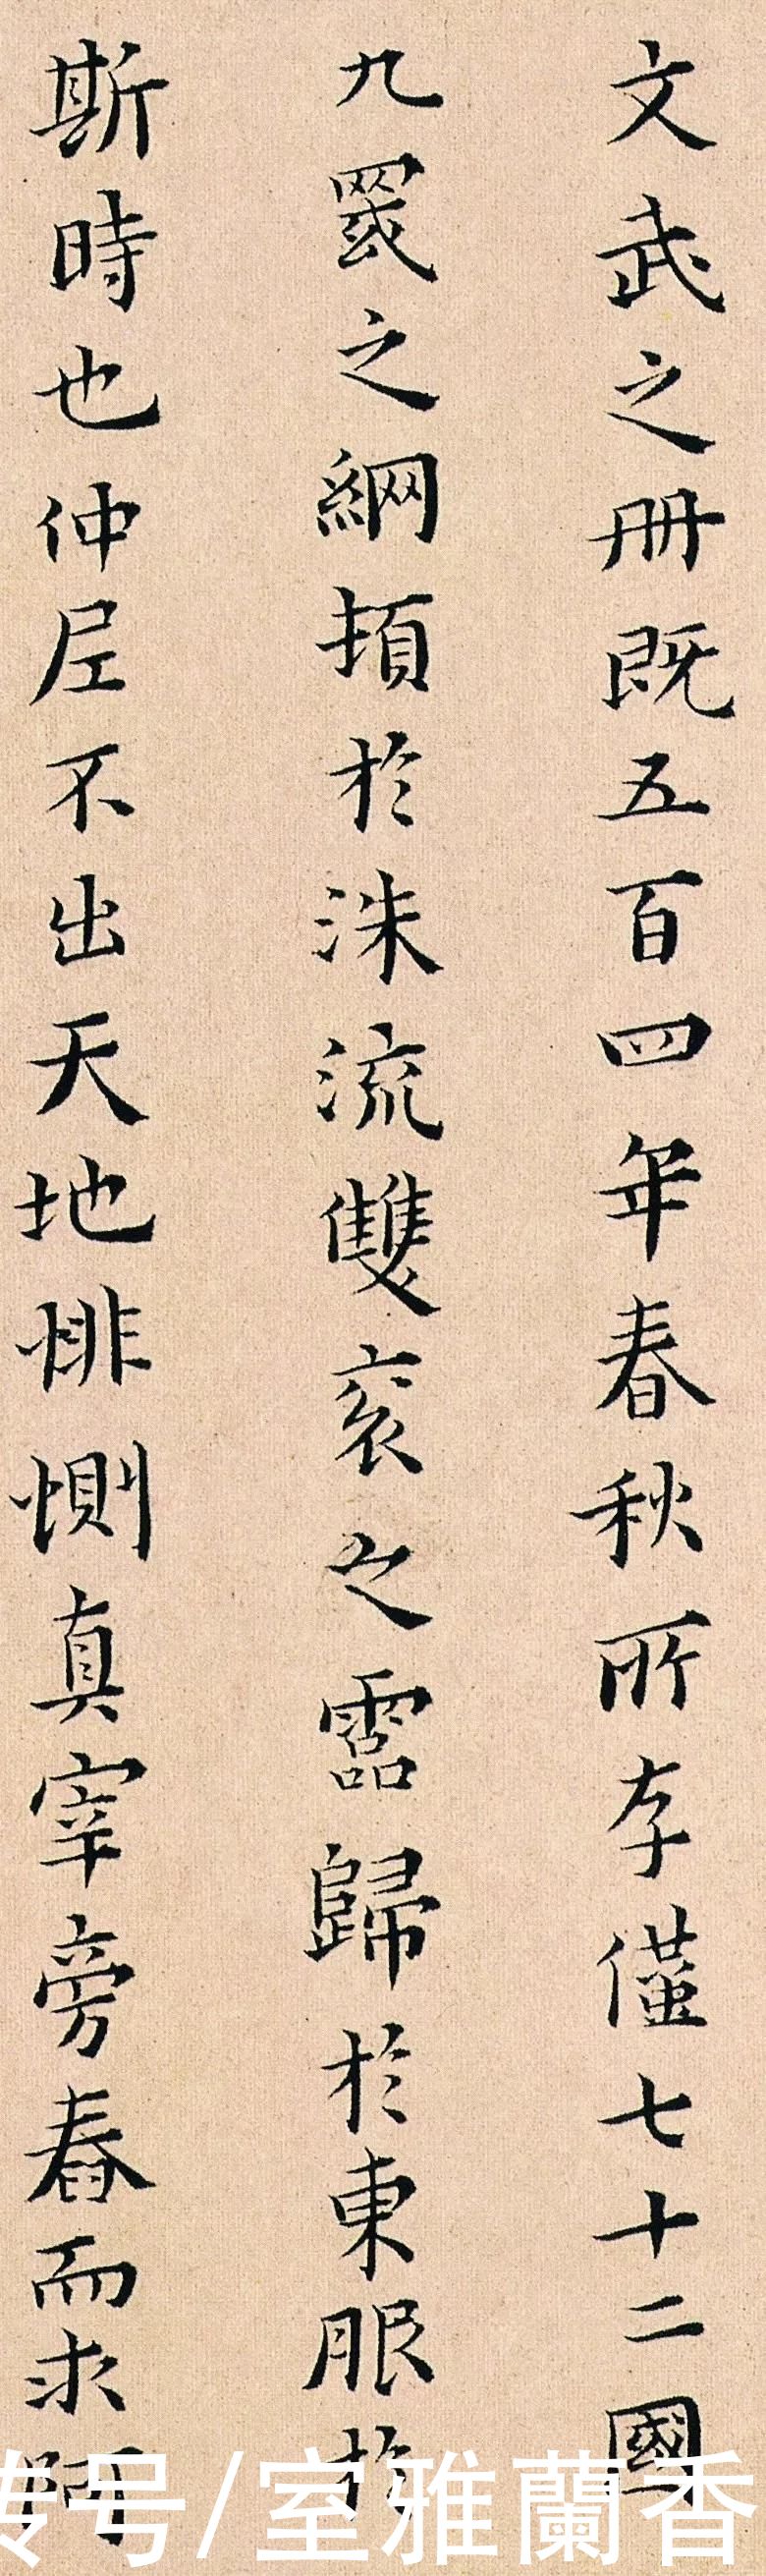 文武之册既五百四年春秋所存僅七十二國
九罭之綱頓於洙流雙衮之霝歸於東服於
斯時也仲尼不出天地悱惻真宰旁舂而求阿
号/室雅蘭香